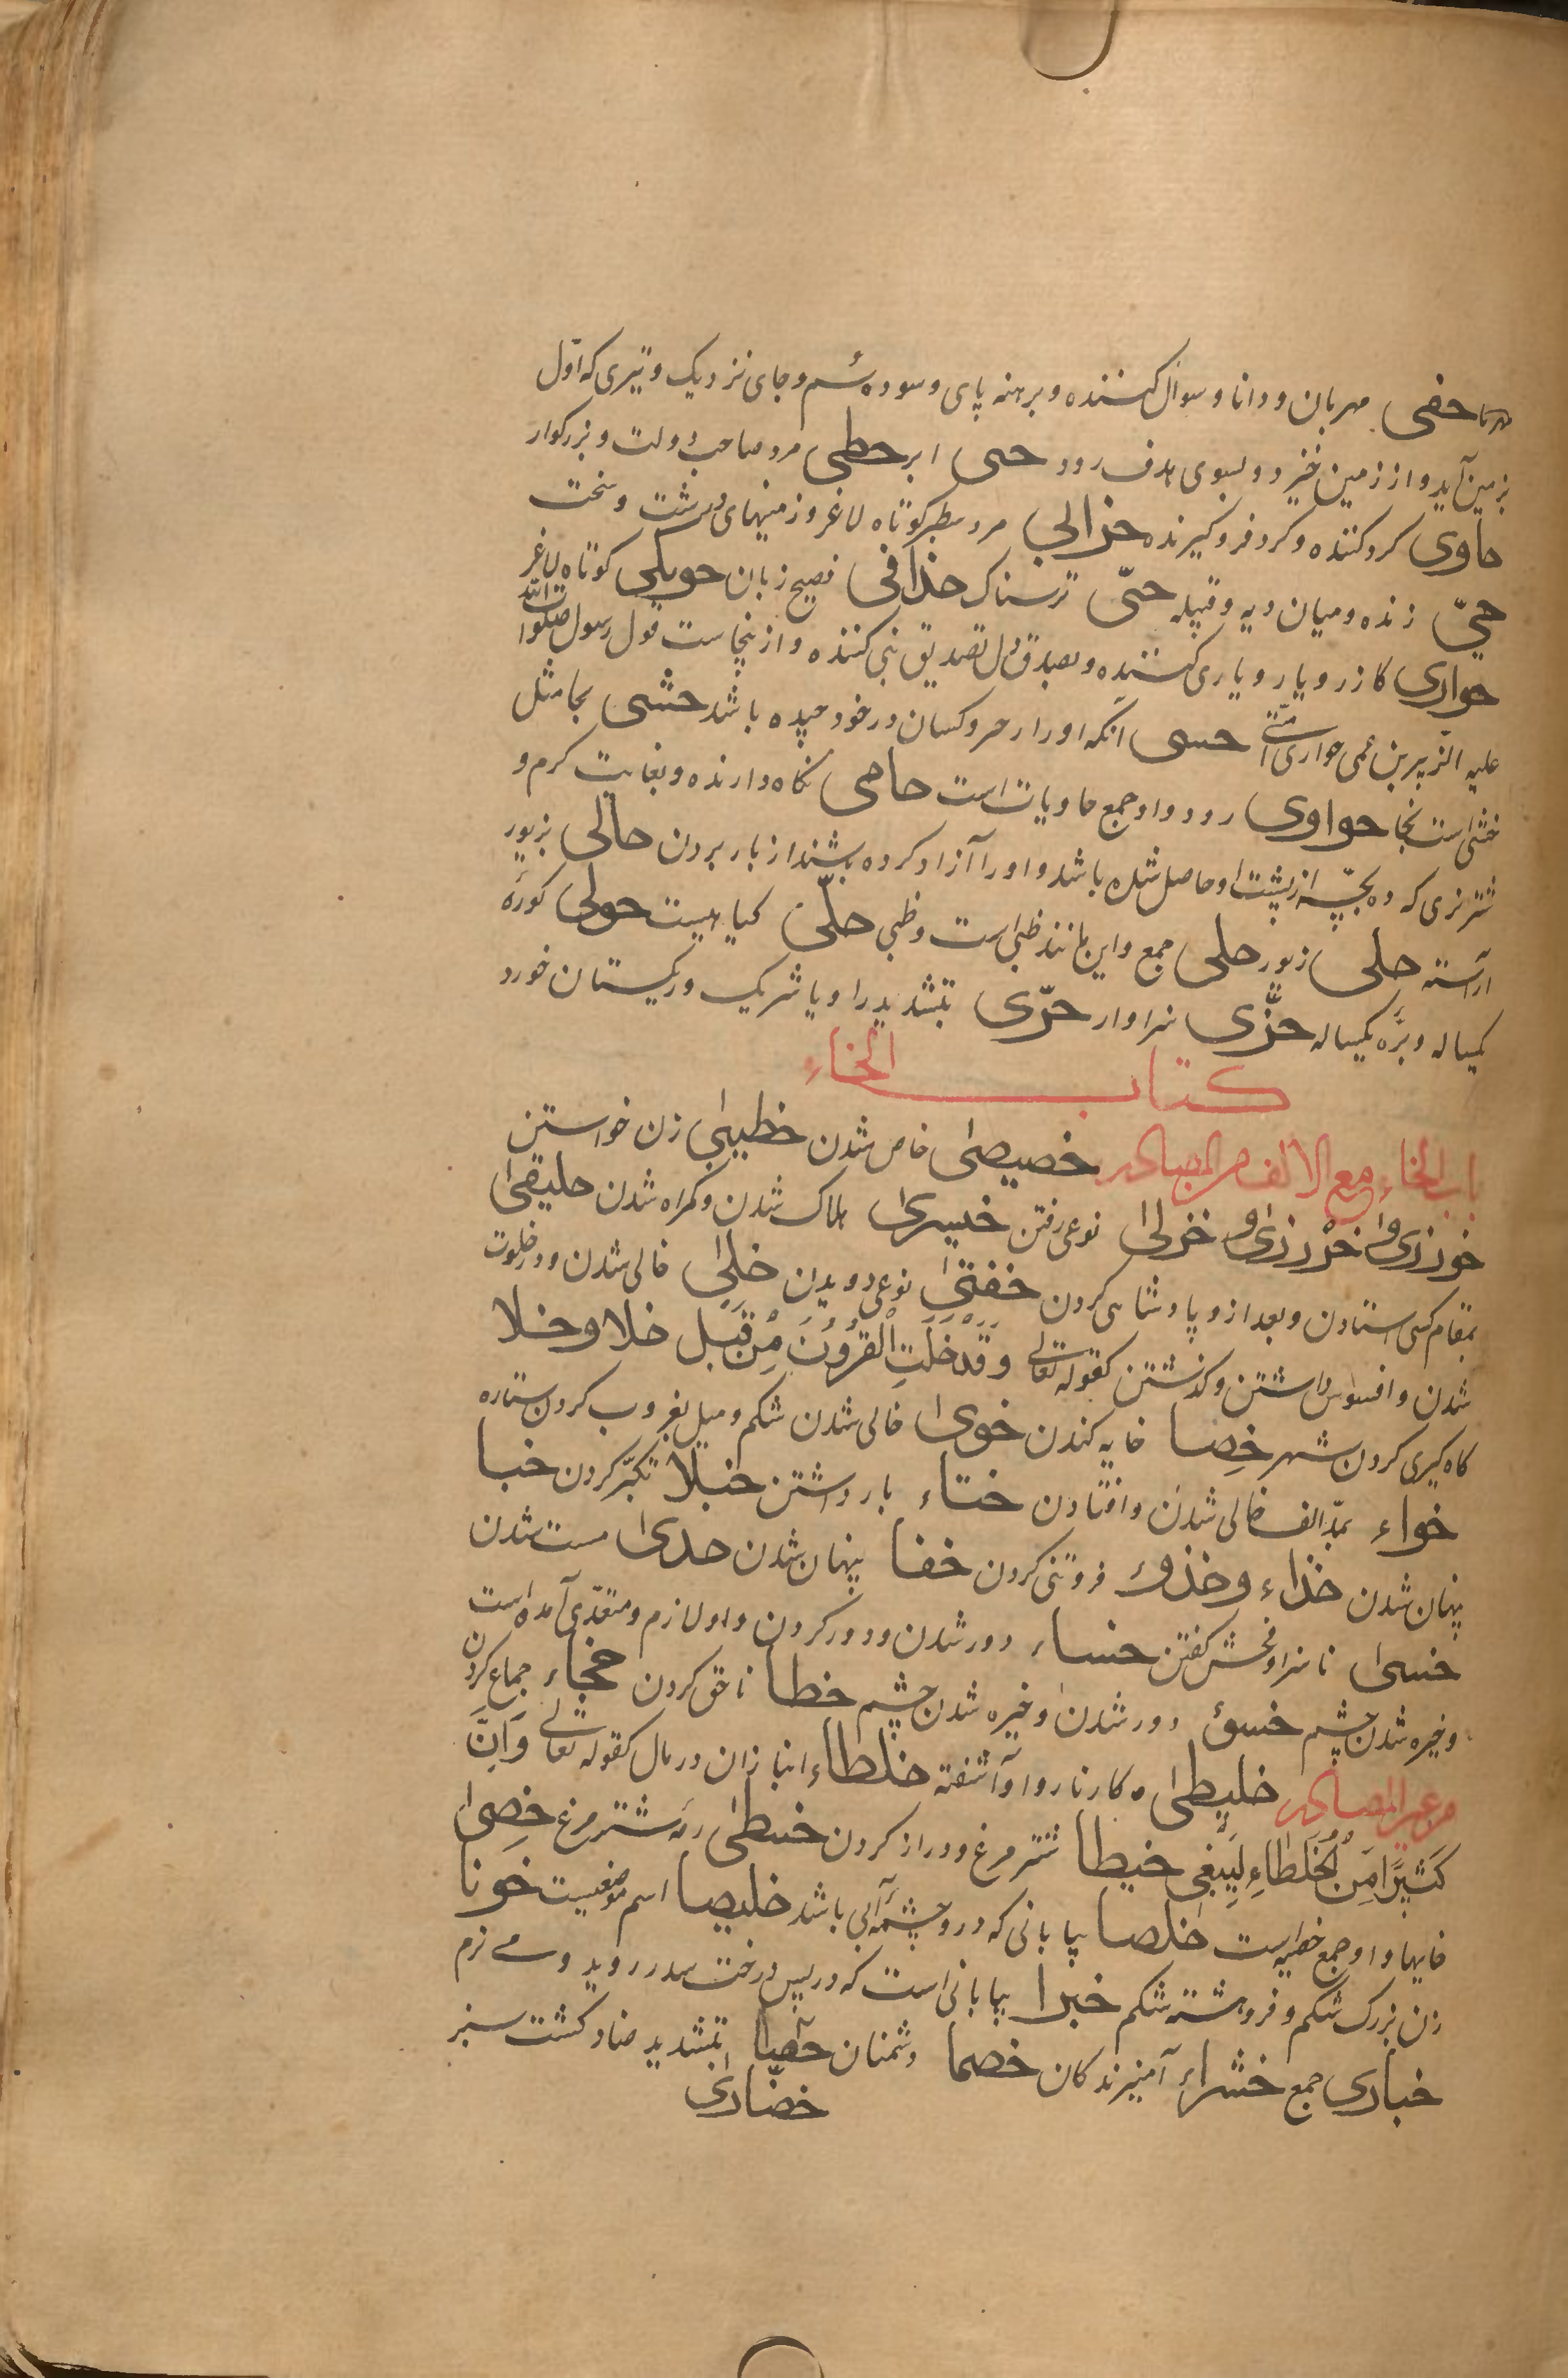 حفی مهربان و دانا و سوال کننده و برهنه پای و سوده سُم و جای نزدیک و تیری که اوّل
بزمین آید و از زمین خیزد و بسوی هدف رود حبی ابر حظی مرد صاحب دولت و بزرکوار
حاوی کرد کننده و کرد فرو کیرنده حزابی مرد سطبر کوتاه لاغر و زمینهای درشت و سخت
حیّ زنده و میان دیه و قبیله حیّی ترسناک حذاقی فصیح زبان حوتکی کوتاه لاغر
حواری کازر و یار و یاری کننده و بصدق دل تصدیق نبی کننده و ازینجاست قول رسول صلوات الله
علیه الزبیر بن عمی حواری امتی آنکه او را در خود باشد حشی بجا مثل
خشی است بخا حواوی رودها و او جمع حاویات است حامی نکاه دارنده و بغایت کرم و
شتر نری که ده بچّه از پشت او حاصل شده باشد و او را آزاد کرده باشند از بار بردن حالی بزیور
آراسته حلی زیور حلی جمع و این مانند ظبی است و ظبی حلّی کیاهیست حولی کورهٔ
یکساله و برّه یکساله حرّی سزاوار حرّی بتشدید را و یا شریک و ریکستان خورد
کتاب الخاء
باب الخاء مع الالف من المصادر خصیصی خاص شدن خطیبی زن خواستن
خوزری و خیزری و خزلی نوعی رفتن خیسری هلاک شدن و کمراه شدن خلیفی
بمقام کسی استادن و بعد ازو پادشاهی کردن نوعی دویدن خلی خالی شدن و در خلوت
شدن و افسوس داشتن و کذشتن کقوله تعالی وَقَدْ خَلَتِ الْقُرُونُ مِنْ قَبْلِ خلا و خلا
کاه کیری کردن شهر خِصا خایه کندن خوی خالی شدن شکم و میل بغروب کردن ستاره
خواء بمدّ الف خالی شدن و افتادن ختاء باز داشتن خیلا تکبّر کردن خبا
پنهان شدن خذاء و خذو فروتنی کردن خفا پنهان شدن خدی سست شدن
خنی ناسزا و فحش کفتن خساء دور شدن و دور کردن و او لازم و متعدّی آمده است
و خیره شدن چشم خسؤ دور شدن و خیره شدن چشم خطا ناحق کردن خجاء جماع کردن
من غیر المصادر خلیطی کار ناروا و آشفته خلطاء انبازان در مال کقوله تعالی وَاِنَّ
کَثِیرًا مِنَ الْخُلَطَاءِ لَیَبْغِی خیطا شتر مرغ و دراز کردن خیطی رمه شتر مرغ خِصی
خایها و او جمع خصیه است خلصا بیابانی که درو چشمه آبی باشد خلیصا اسم موضعیست خوثا
زن بزرک شکم و فروهشته شکم خبرا بیابانی است که در پس درخت سدر روید و زمی نرم
خباری جمع خشراء آمیزندکان خصما دشمنان بتشدید ضاد کشت سبز
خضّاری